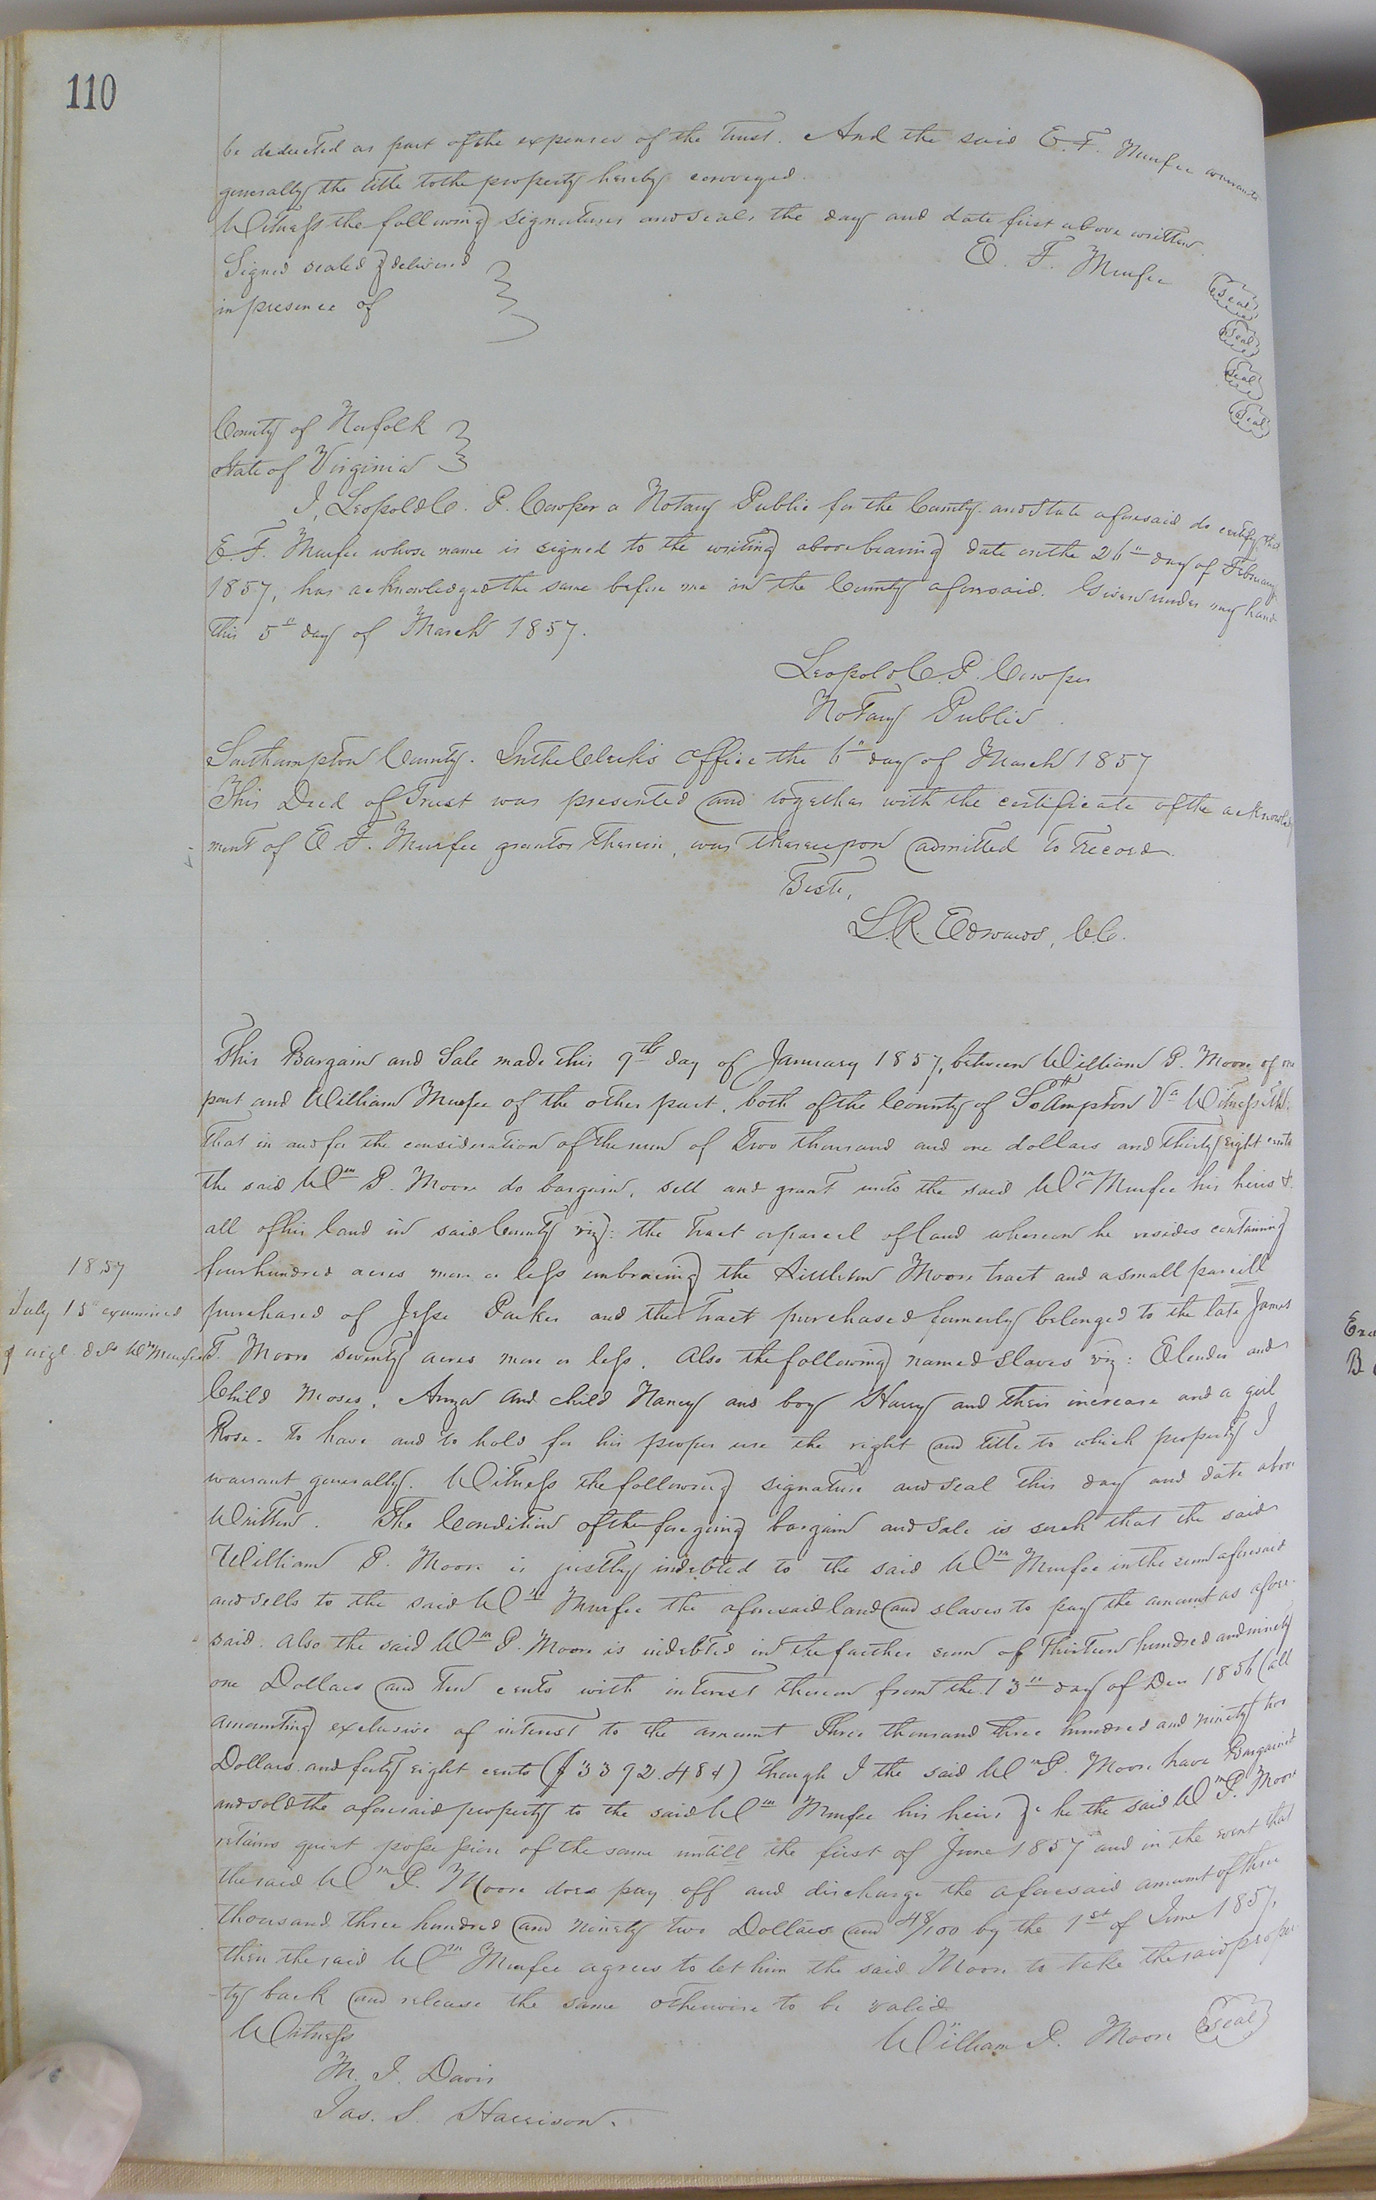 110
be deducted as part of the expenses of the Trust. And the said E. F. Murfee warrants
generally the title to the property hereby conveyed.
Witness the following signatures and seals the day and date first above written.
E. F. Murfee seal
Signed sealed & delivered
in presence of
seal
seal
seal
County of Norfolk
State of Virginia
I, Leopold C. P. Cowper a Notary Public for the County and State aforesaid do certify that
E. F. Murfee whose name is signed to the writing above bearing date on the 26" day of February
1857, has acknowledged the same before me in the County aforesaid. Given under my hand
this 5" day of March 1857.
Leopold C. P. Cowper
Notary Public.
Southampton County. In the Clerk's office the 6" day of March 1857
This Deed of Trust was presented and together with the certificate of the acknowledg
ment of E. F. Murfee grantor therein, was thereupon admitted to record.
Teste,
L. R. Edwards, C.C.
This Bargain and Sale made this 9th day of January 1857, between William P. Moore of one
part and William Murfee of the other part, both of the County of So.Hampton Va Witnesseth:
that in and for the consideration of the sum of Two thousand and one dollars and Thirty eight cents
the said Wm P. Moore do bargain, sell and grant unto the said Wm Murfee his heirs &c
all of his land in said County viz: the tract or parcel of land whereon he resides containing
four hundred acres more or less embracing the Littleton Moore tract and a small parcill
purchased of Jesse Parker and the tract purchased formerly belonged to the late James
T. Moore seventy acres more or less. Also the following named slaves viz: Elender and
Child Moses, Anza and child Nancy and boy Harry and their increase and a girl
Rose. To have and to hold for his proper use the right and title to which property I
warrant generally. Witness the following signature and seal this day and date above
Written. The Condition of the foregoing bargain and sale is such that the said
William P. Moore is justly indebted to the said Wm Murfee in the sum aforesaid
and sells to the said Wm Murfee the aforesaid land and slaves to pay the amount as afore-
said. Also the said Wm P. Moore is indebted in the further sum of Thirteen hundred and ninety
one Dollars and Ten cents with interest thereon from the 13" day of Dec 1856 (all
amounting exclusive of interest to the amount Three thousand three hundred and ninety two
Dollars and forty eight cents ($3392.48¢) though I the said Wm P. Moore have Bargained
and sold the aforesaid property to the said Wm Murfee his heirs &c he the said Wm P. Moore
retains quiet possession of the same untill the first of June 1857 and in the event that
the said Wm P. Moore does pay off and discharge the aforesaid amount of three
thousand three hundred and ninety two Dollars and 48/100 by the 1st of June 1857,
then the said Wm Murfee agrees to let him the said Moore to take the said proper-
ty back and release the same otherwise to be valid
Witness
William P. Moore seal
M. J. Davis
Jas. S. Harrison.
1857
July 15" examined
& Wm Murfee